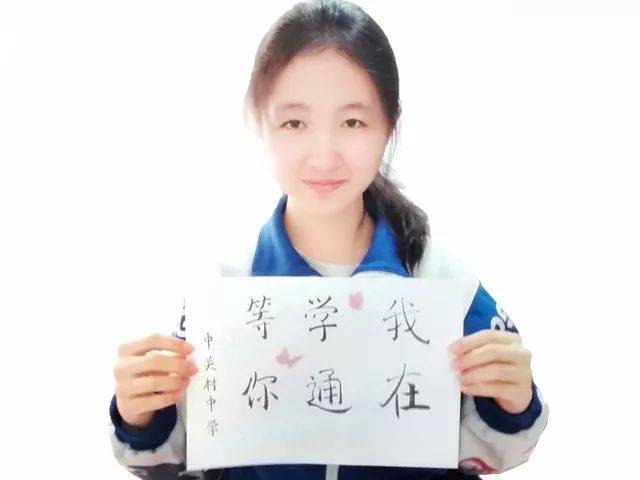 我在
学通
等你
中关村中学